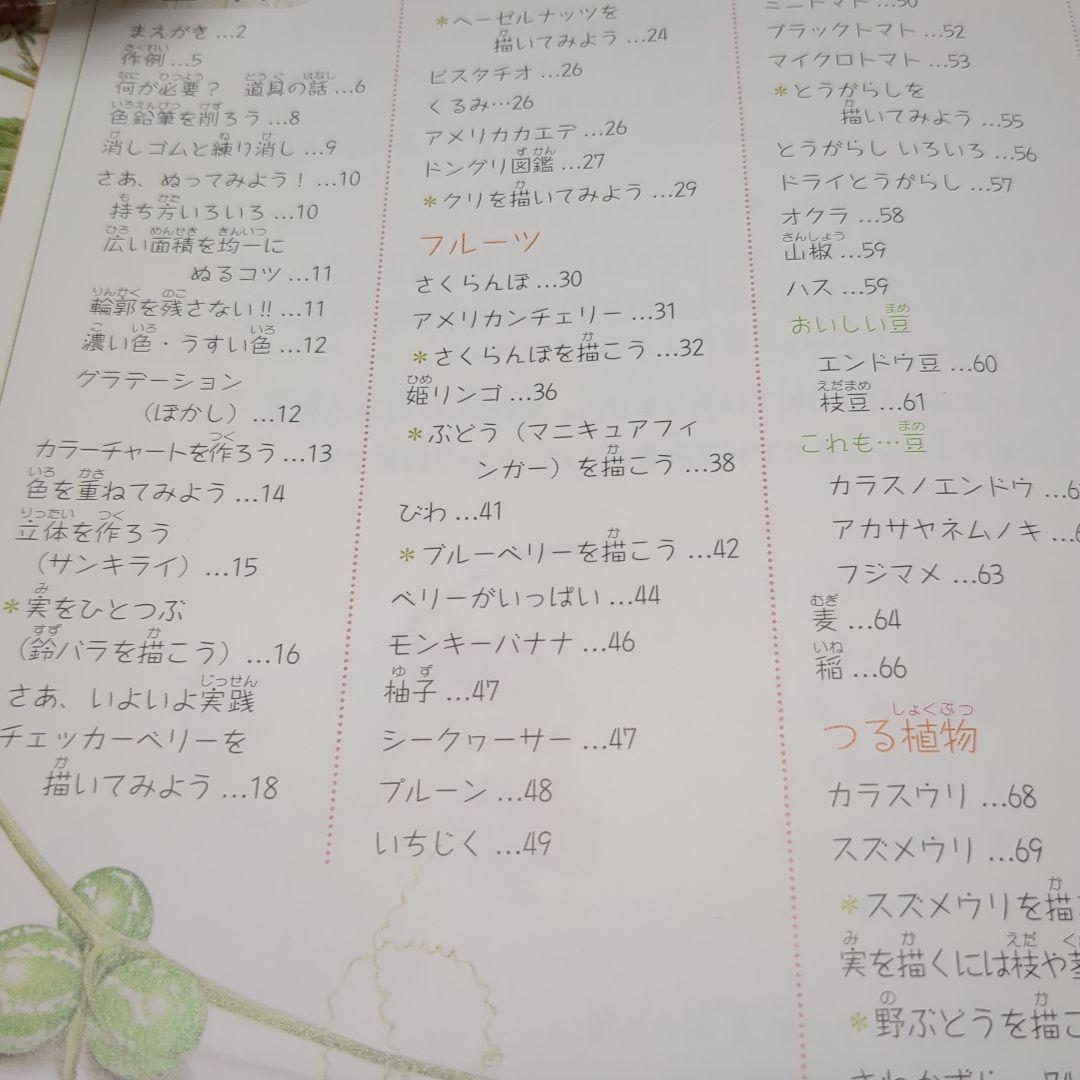 まえがき …2
作例 …5
何が必要？ 道具の話 …6
色鉛筆を削ろう …8
消しゴムと練り消し …9
さあ、ぬってみよう！ …10
持ち方いろいろ …10
広い面積を均一に
ぬるコツ …11
輪郭を残さない!! …11
濃い色・うすい色 …12
グラデーション
（ぼかし） …12
カラーチャートを作ろう …13
色を重ねてみよう …14
立体を作ろう
（サンキライ） …15
*実をひとつぶ
（鈴バラを描こう） …16
さあ、いよいよ実践
チェッカーベリーを
描いてみよう …18
*ヘーゼルナッツを
描いてみよう …24
ピスタチオ …26
くるみ…26
アメリカカエデ …26
ドングリ図鑑 …27
*クリを描いてみよう …29
フルーツ
さくらんぼ …30
アメリカンチェリー …31
*さくらんぼを描こう …32
姫リンゴ …36
*ぶどう（マニキュアフィ
ンガー）を描こう …38
びわ …41
*ブルーベリーを描こう …42
ベリーがいっぱい …44
モンキーバナナ …46
柚子 …47
シークヮーサー …47
プルーン …48
いちじく …49
ミニトマト …50
ブラックトマト …52
マイクロトマト …53
*とうがらしを
描いてみよう …55
とうがらし いろいろ …56
ドライとうがらし …57
オクラ …58
山椒 …59
ハス …59
おいしい豆
エンドウ豆 …60
枝豆 …61
これも…豆
カラスノエンドウ …6
アカサヤネムノキ …6
フジマメ …63
麦 …64
稲 …66
つる植物
カラスウリ …68
スズメウリ …69
*スズメウリを描
実を描くには枝や
*野ぶどうを描こ